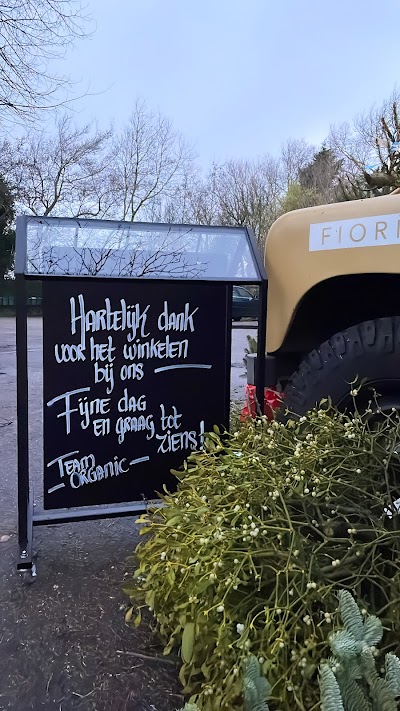 Hartelijk dank
voor het winkelen
bij ons
Fijne dag
en graag tot
ziens!
Team
Organic
FIORI